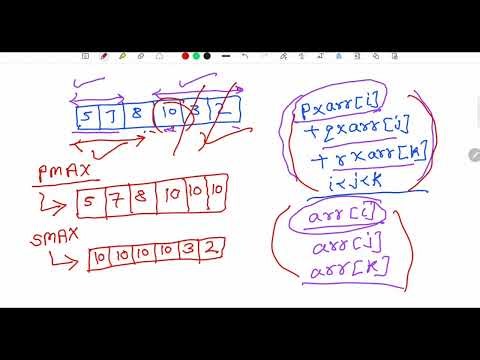 5 7 8 10 3 2
p×arr[i]
+ q×arr[j]
+ r×arr[k]
i<j<k
PMAX
5 7 8 10 10 10
SMAX
10 10 10 10 3 2
arr[i]
arr[j]
arr[k]